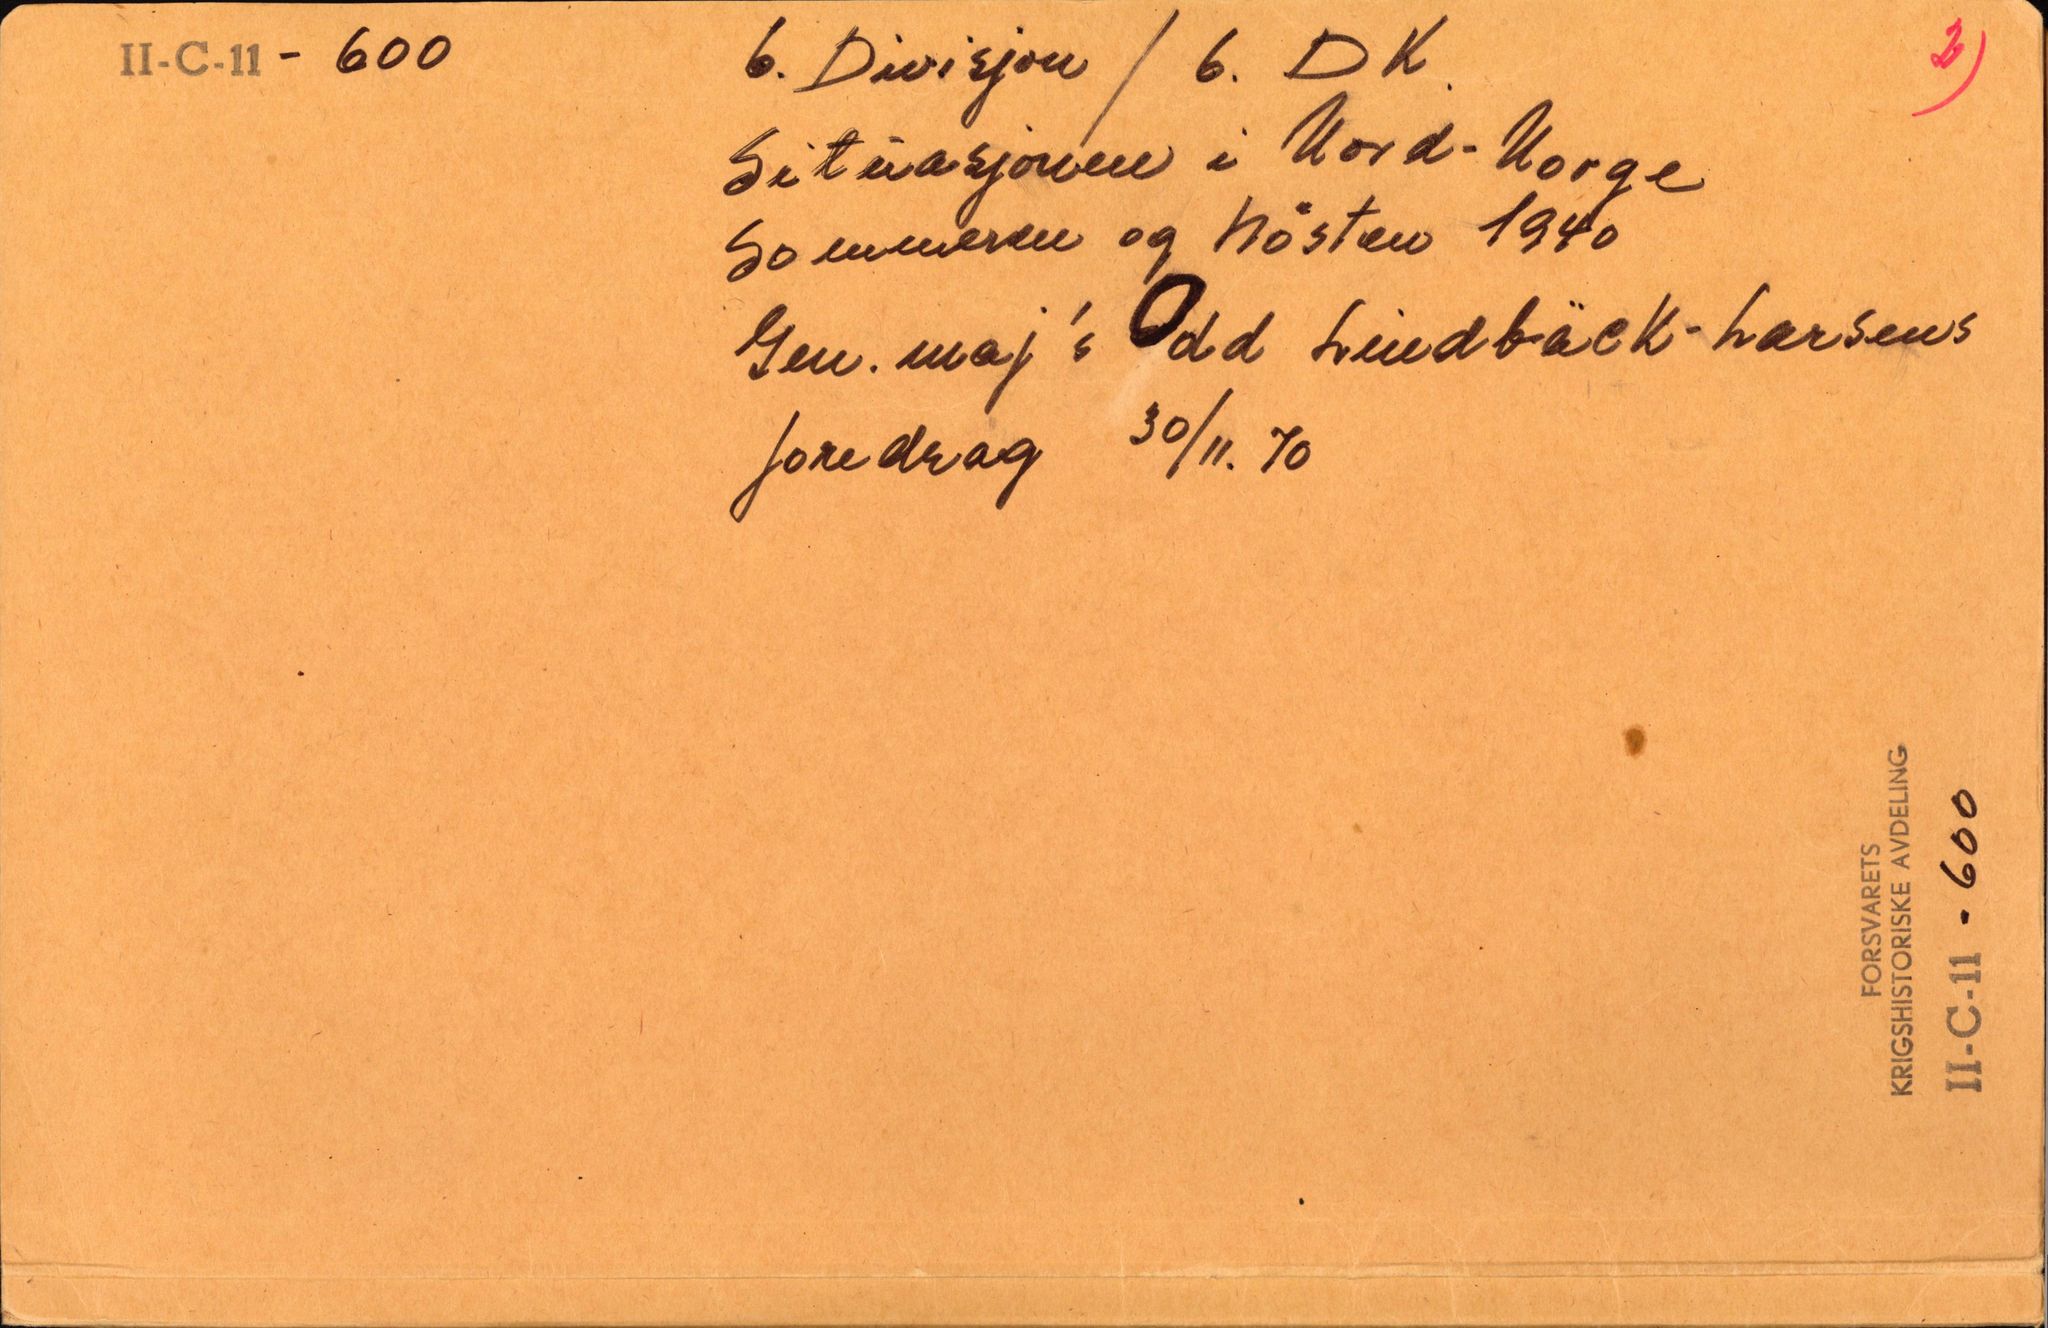 II-C-11 - 600
6. Divisjon / 6. DK.
2)
Situasjonen i Nord-Norge
Sommeren og hösten 1940
Gen. maj's Odd Lindbäck-Larsens
foredrag 30/11. 70
FORSVARETS
KRIGSHISTORISKE AVDELING
II-C-11 - 600